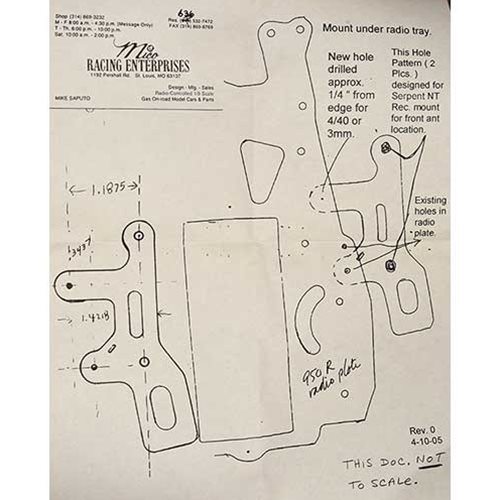 Shop (314) 869-3232
M - F 8:00 a.m. - 4:30 p.m. (Message Only)
T - Th. 6:00 p.m. - 10:00 p.m.
Sat. 10:00 a.m. - 2:00 p.m.
636
Res. 532-7472
FAX (314) 869-8769
Mico
RACING ENTERPRISES
1192 Pershall Rd. St. Louis, MO 63137
Design - Mfg. - Sales
Radio-Controlled 1/8 Scale
Gas On-road Model Cars & Parts
MIKE SAPUTO
Mount under radio tray.
New hole
drilled
approx.
1/4 " from
edge for
4/40 or
3mm.
This Hole
Pattern ( 2
Plcs. )
designed for
Serpent NT
Rec. mount
for front ant
location.
Existing
holes in
radio
plate.
1.1875
.3437
1.4218
950 R
radio plate
Rev. 0
4-10-05
THIS DOC. NOT
TO SCALE.